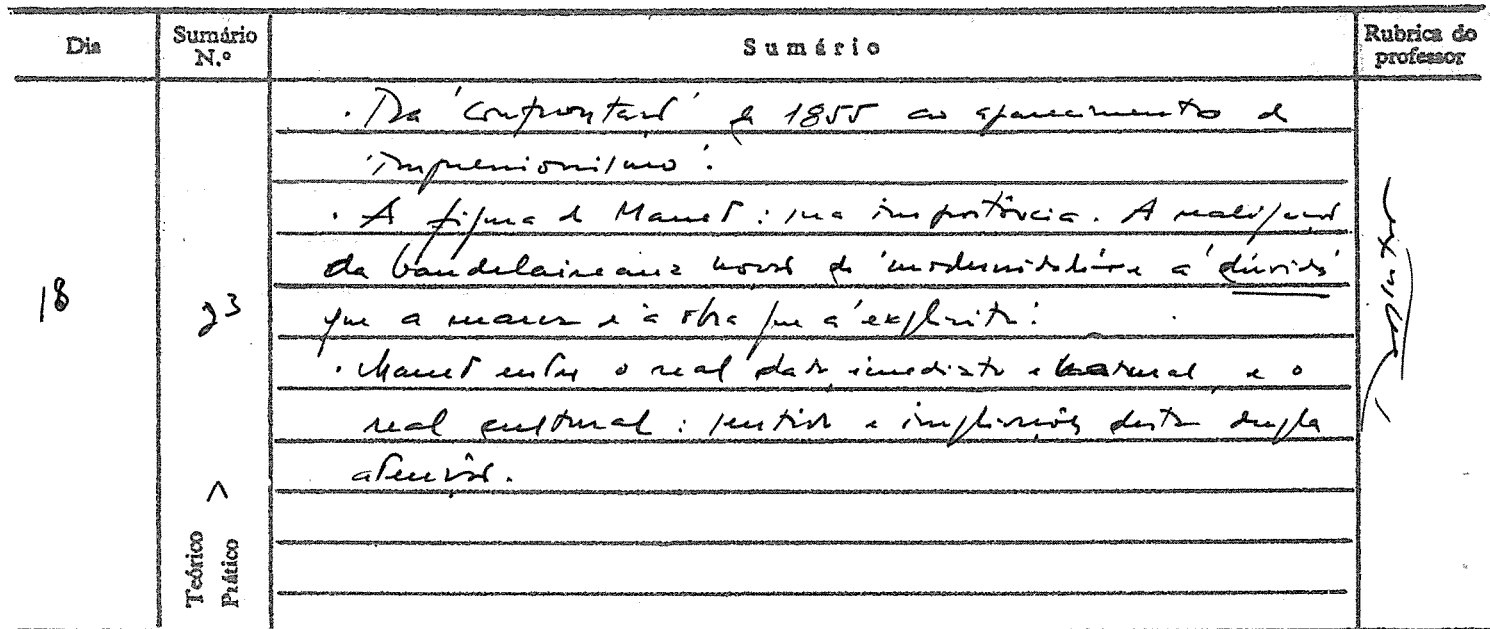 Dia
Sumário N.º
Sumário
Rubrica do professor
18
23
. Da 'confrontação' de 1855 ao aparecimento do
'Impressionismo'.
. A figura de Manet: sua importância. A realização
da baudelaireana noção de 'modernidade' e a 'dúvida'
que a marca e a obra que a 'explicita'.
. Manet entre o real dado imediato e natural, e o
real cultural: sentido e implicações desta dupla
atenção.
Teórico
Prático